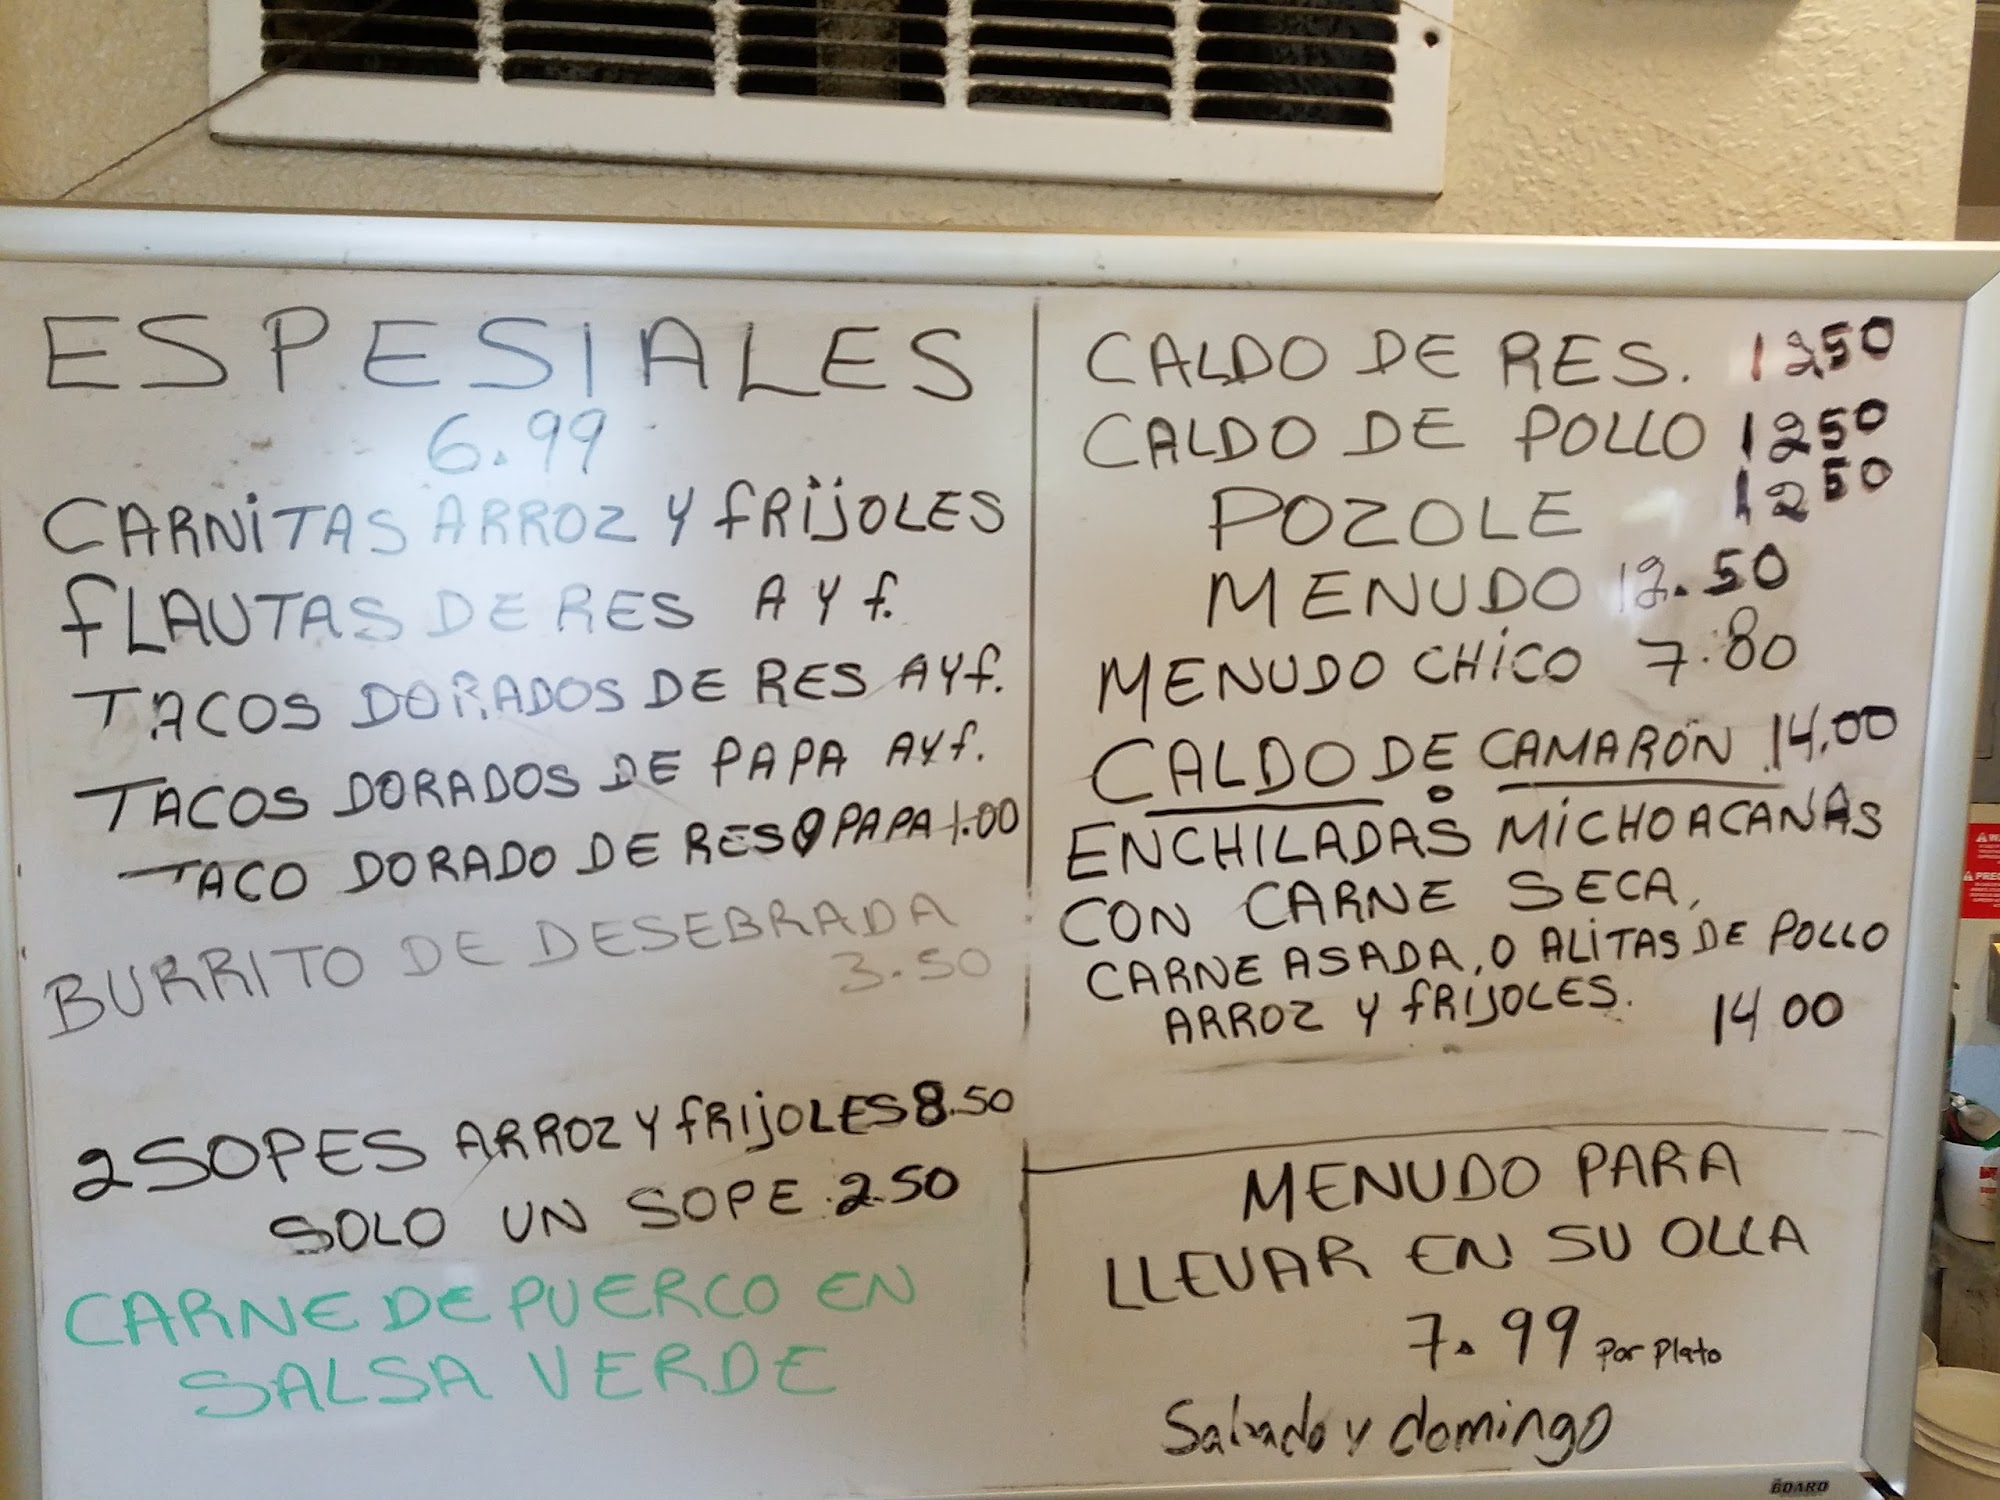 ESPESIALES
6.99
CARNITAS ARROZ Y FRIJOLES
FLAUTAS DE RES A Y F.
TACOS DORADOS DE RES A Y F.
TACOS DORADOS DE PAPA A Y F.
TACO DORADO DE RES O PAPA 1.00
BURRITO DE DESEBRADA
3.50
2 SOPES ARROZ Y FRIJOLES 8.50
SOLO UN SOPE 2.50
CARNE DE PUERCO EN
SALSA VERDE
CALDO DE RES. 1250
CALDO DE POLLO 1250
POZOLE 1250
MENUDO 12.50
MENUDO CHICO 7.80
CALDO DE CAMARÓN 14.00
ENCHILADAS MICHOACANAS
CON CARNE SECA,
CARNE ASADA, O ALITAS DE POLLO
ARROZ Y FRIJOLES. 14 00
MENUDO PARA
LLEVAR EN SU OLLA
7.99 Por Plato
y domingo
BOARD